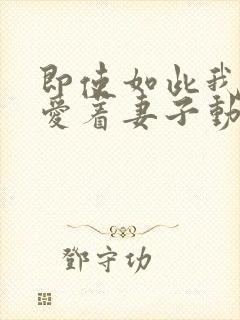 即使如此我
爱着妻子動
鄧守功